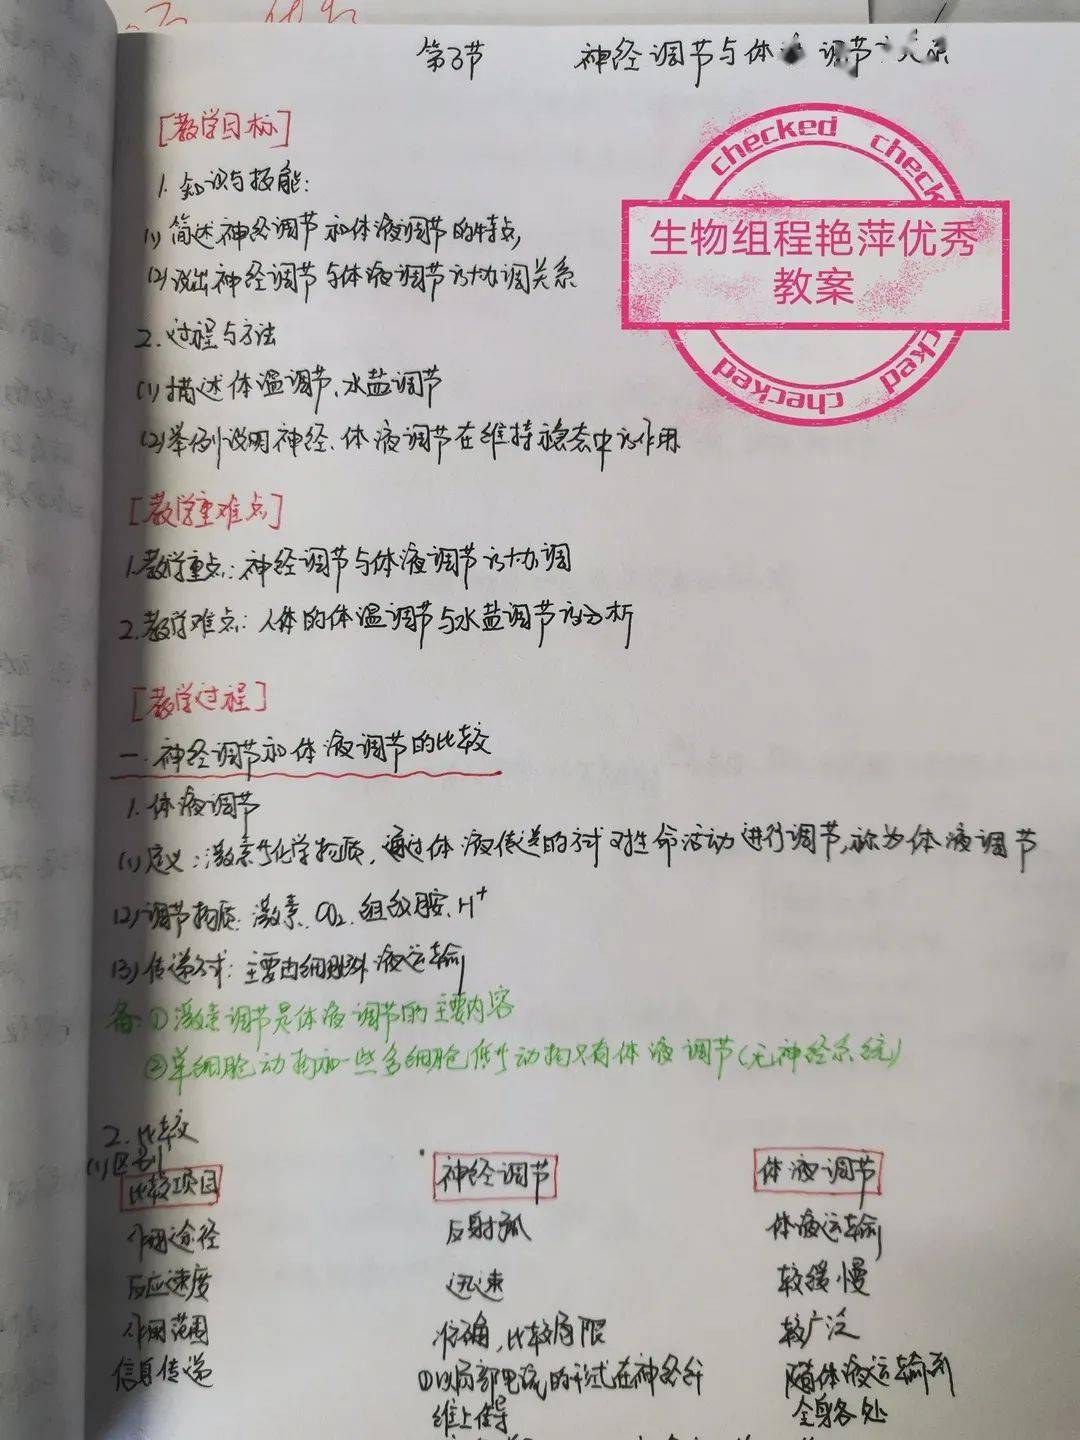 第3节 神经调节与体液调节的关系
[教学目标]
1. 知识与技能:
(1)简述神经调节和体液调节的特点,
(2)说出神经调节与体液调节的协调关系
2. 过程与方法
(1)描述体温调节、水盐调节
(2)举例说明神经、体液调节在维持稳态中的作用
[教学重难点]
1.教学重点:神经调节与体液调节的协调
2.教学难点:人体的体温调节与水盐调节的分析
[教学过程]
一.神经调节和体液调节的比较
1.体液调节
(1)定义:激素等化学物质,通过体液传送的方式对生命活动进行调节,称为体液调节
(2)调节物质:激素、CO₂、组织胺、H⁺
(3)传递方式:主要由细胞外液运输
备:①激素调节是体液调节的主要内容
②单细胞动物和一些多细胞低等动物只有体液调节(无神经系统)
2.比较
(1)区别
比较项目 神经调节 体液调节
作用途径 反射弧 体液运输
反应速度 迅速 较缓慢
作用范围 准确,比较局限 较广泛
信息传递 ①以局部电流的形式在神经纤 随体液运输到
维上传导 全身各处
checked checked
生物组程艳萍优秀
教案
checked checked